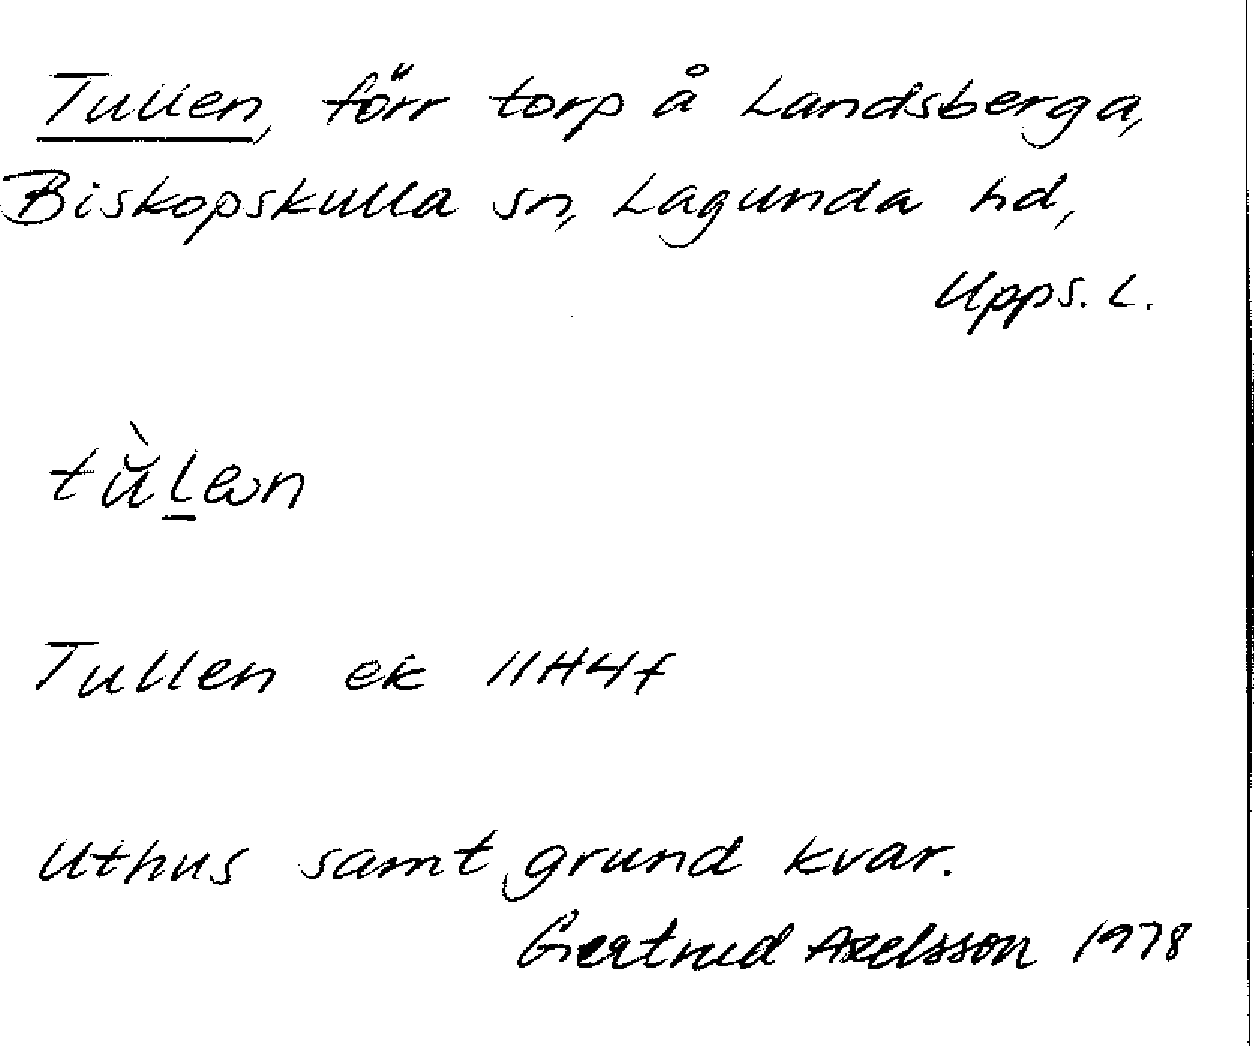 Tullen, förr torp å Landsberga,
Biskopskulla sn, Lagunda hd,
Upps. L.
Tullen ek 11H4f
Uthus samt grund kvar.
Gertrud Axelsson 1978